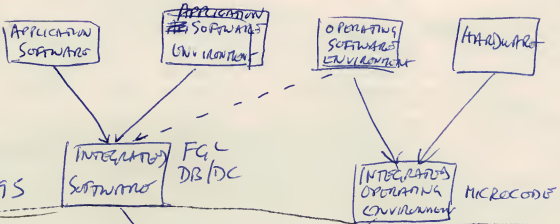 APPLICATION
SOFTWARE
APPLICATION
SOFTWARE
ENVIRONMENT
OPERATING
SOFTWARE
ENVIRONMENT
HARDWARE
INTEGRATED
SOFTWARE
FGL
DB/DC
INTEGRATED
OPERATING
ENVIRONMENT
MICROCODE